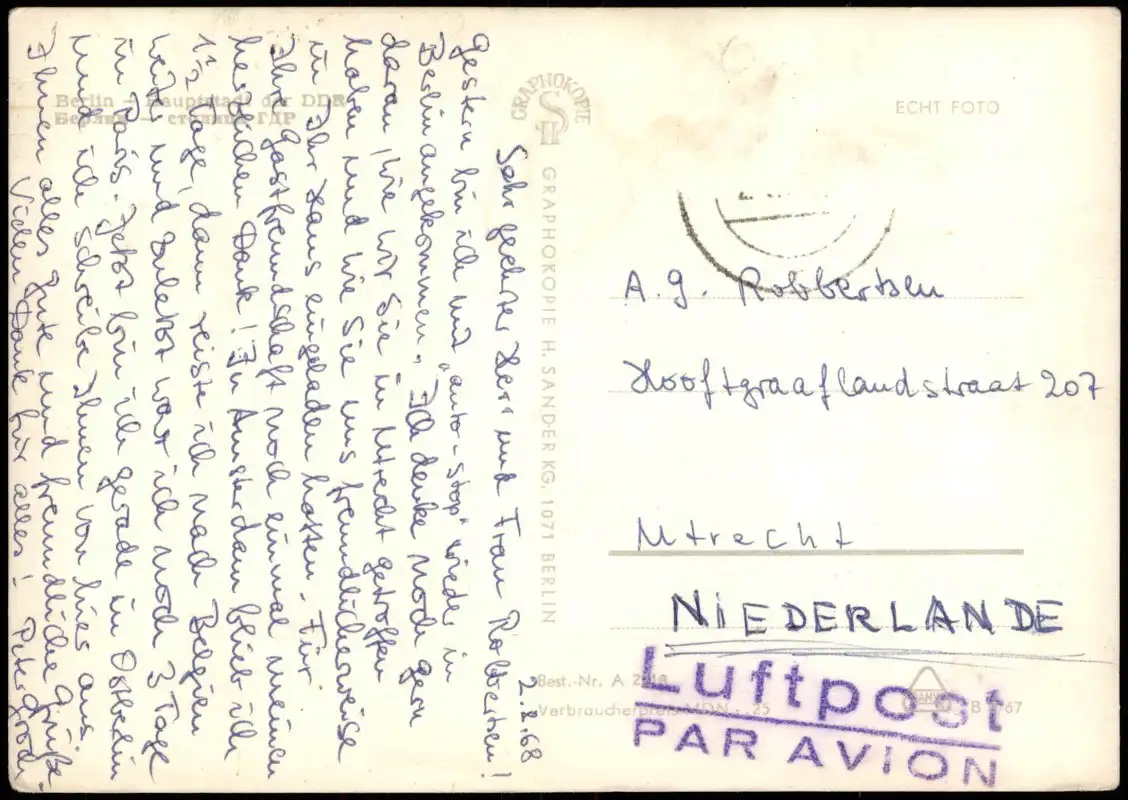 2.8.68
Sehr geehrter Herr und Frau Robbertsen!
Gestern bin ich mit „auto-stop“ wieder in
Berlin angekommen. Ich denke noch gern
daran, wie wir Sie in Utrecht getroffen
haben und wie Sie uns freundlicherweise
in Ihr Haus eingeladen hatten. Für
Ihre Gastfreundschaft noch einmal meinen
herzlichen Dank! In Amsterdam blieb ich
1 1/2 Tage, dann reiste ich nach Belgien
weiter und zuletzt war ich noch 3 Tage
in Paris. Jetzt bin ich gerade in Ostberlin
und ich schreibe Ihnen von hier aus.
Ihnen alles gute und freundliche Grüße
Vielen Dank für alles! Peter
Berlin – Hauptstadt der DDR
Берлин — столица ГДР
GRAPHOKOPIE
GRAPHOKOPIE H. SANDER KG, 1071 BERLIN
ECHT FOTO
A. G. Robbertsen
Hooftgraaflandstraat 207
Utrecht
NIEDERLANDE
Best.-Nr. A
Verbraucherpreis MDN -.25
Luftpost
PAR AVION